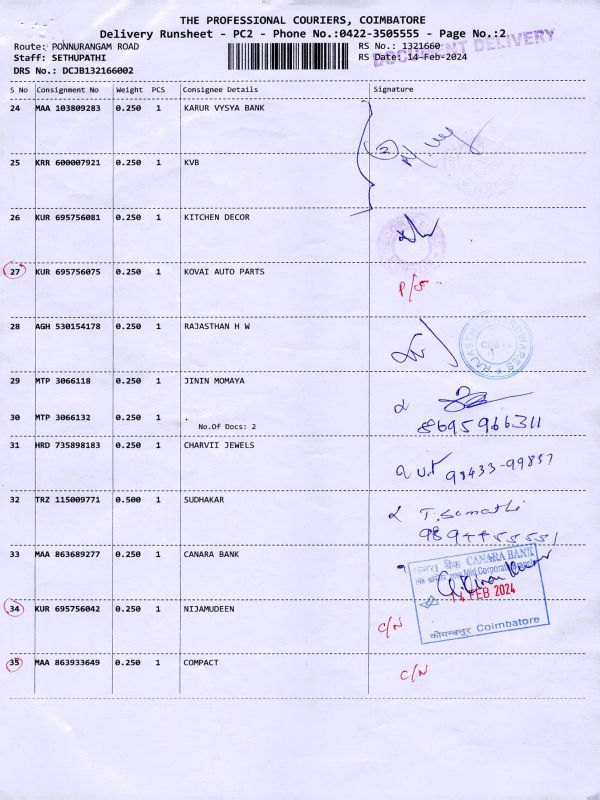 THE PROFESSIONAL COURIERS, COIMBATORE
Delivery Runsheet - PC2 - Phone No.:0422-3505555 - Page No.:2
Route: PONNURANGAM ROAD RS No.: 1321660
Staff: SETHUPATHI RS Date: 14-Feb-2024
DOCUMENT DELIVERY
DRS No.: DCJB132166002
S No Consignment No Weight PCS Consignee Details Signature
24 MAA 103809283 0.250 1 KARUR VYSYA BANK
2
25 KRR 600007921 0.250 1 KVB
26 KUR 695756081 0.250 1 KITCHEN DECOR
27 KUR 695756075 0.250 1 KOVAI AUTO PARTS
28 AGH 530154178 0.250 1 RAJASTHAN H W
29 MTP 3066118 0.250 1 JININ MOMAYA
30 MTP 3066132 0.250 1 . 8695966311
No.Of Docs: 2
31 HRD 735898183 0.250 1 CHARVII JEWELS
98433-99857
32 TRZ 115009771 0.500 1 SUDHAKAR T. Sumathi
9894455551
33 MAA 863689277 0.250 1 CANARA BANK
केनरा बैंक CANARA BANK
Mid Corporate
14 FEB 2024
कोयम्बत्तूर Coimbatore
34 KUR 695756042 0.250 1 NIJAMUDEEN C/N
35 MAA 863933649 0.250 1 COMPACT C/N